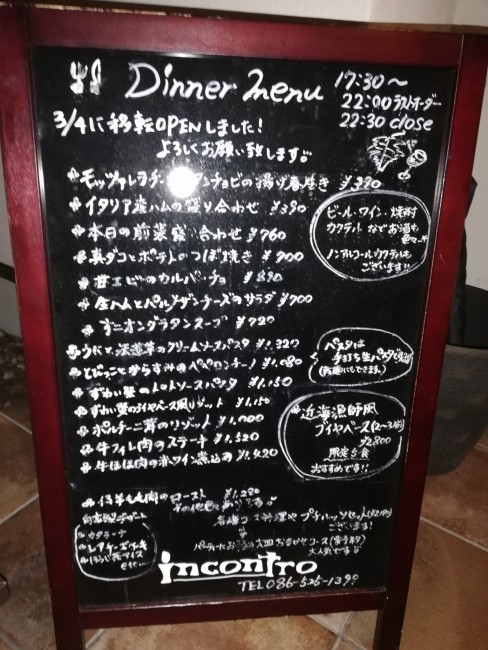 Dinner menu 17:30〜
22:00 ラストオーダー
22:30 close
3/4に移転OPENしました!
よろしくお願い致します。
モッツァレラチ アンチョビの揚げ春巻き ¥390
イタリア産ハムの盛り合わせ ¥390
本日の前菜盛り合わせ ¥760
真ダコとポテトのつぼ焼き ¥900
甘エビのカルパッチョ ¥890
生ハムとパルメザンチーズのサラダ ¥900
オニオングラタンスープ ¥720
うにと法蓮草のクリームソースパスタ ¥1,320
とびっことからすみのペペロンチーノ ¥1,080
ずわい蟹のトマトソースパスタ ¥1,150
ずわい蟹のブイヤベース風リゾット ¥1,150
ポルチーニ茸のリゾット ¥1,000
牛フィレ肉のステーキ ¥1,520
牛ほほ肉の赤ワイン煮込み ¥1,420
仔羊もも肉のロースト ¥1,280
ビール・ワイン・焼酎
カクテルなどお酒も
ノンアルコールカクテルも
ございます!!
パスタは
手打ち生パスタです
近海漁師風
ブイヤベース(2〜3人前)
¥2,800
限定5食
おすすめです!!
自家製デザート
カタラーナ
レアチーズケーキ
etc…
各種コース料理や プチパーツセット
ございます!
パーティーに お一人 入皿 おまかせコース
大人気です
incontro
TEL 086-525-1399